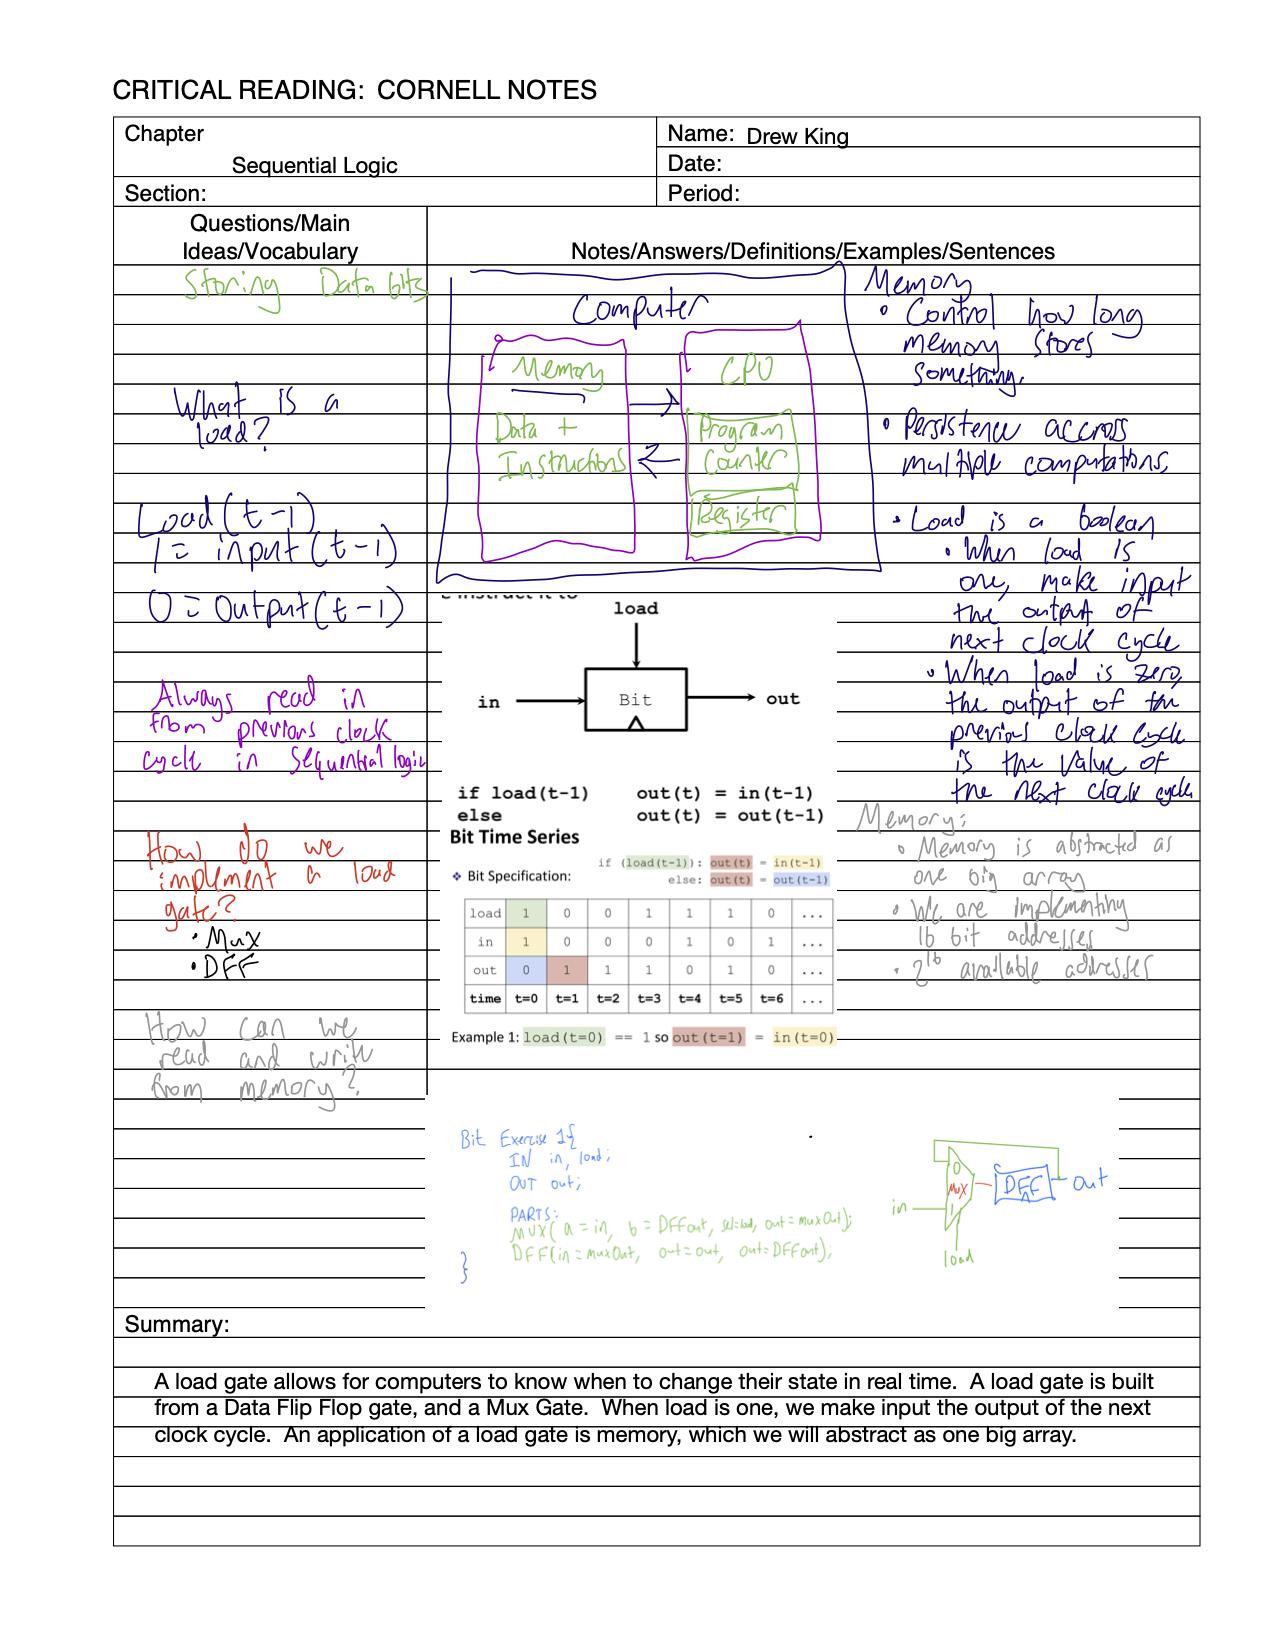 CRITICAL READING: CORNELL NOTES
Chapter
Sequential Logic
Name: Drew King
Date:
Section:
Period:
Questions/Main
Ideas/Vocabulary
Notes/Answers/Definitions/Examples/Sentences
Storing Data bits
What is a
load?
Load(t-1)
1 = input(t-1)
0 = output(t-1)
Always read in
from previous clock
cycle in sequential logic
How do we
implement a load
gate?
• Mux
• DFF
How can we
read and write
from memory?
Computer
Memory
Data +
Instructions
CPU
Program
Counter
Register
Memory
• Control how long
memory stores
something.
• Persistence accross
multiple computations.
• Load is a boolean
• When load is
one, make input
the output of
next clock cycle
• When load is zero,
the output of the
previous clock cycle
is the value of
the next clock cycle
load
in
Bit
out
if load(t-1) out(t) = in(t-1)
else out(t) = out(t-1)
Bit Time Series
❖ Bit Specification:
if (load(t-1)): out(t) = in(t-1)
else: out(t) = out(t-1)
load 1 0 0 1 1 1 0 ...
in 1 0 0 0 1 0 1 ...
out 0 1 1 1 0 1 0 ...
time t=0 t=1 t=2 t=3 t=4 t=5 t=6 ...
Example 1: load(t=0) == 1 so out(t=1) = in(t=0)
Memory:
• Memory is abstracted as
one big array
• We are implementing
16 bit addresses
• 2^16 available addresses
Bit Exercise 1{
IN in, load;
OUT out;
PARTS:
MUX( a = in, b = DFFout, sel=load, out=muxOut);
DFF(in = muxOut, out=out, out=DFFout);
}
0
MUX
1
in
load
DFF
out
Summary:
A load gate allows for computers to know when to change their state in real time. A load gate is built
from a Data Flip Flop gate, and a Mux Gate. When load is one, we make input the output of the next
clock cycle. An application of a load gate is memory, which we will abstract as one big array.